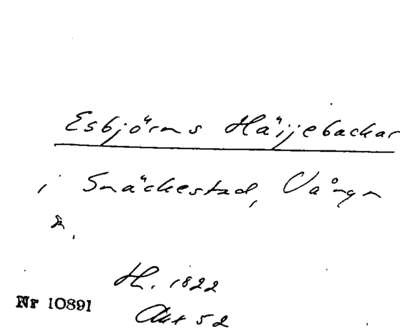 Esbjörns Häijebackar
i Snäckestad, Vånga
s.
H. 1822
Akt 52
Nr 10891